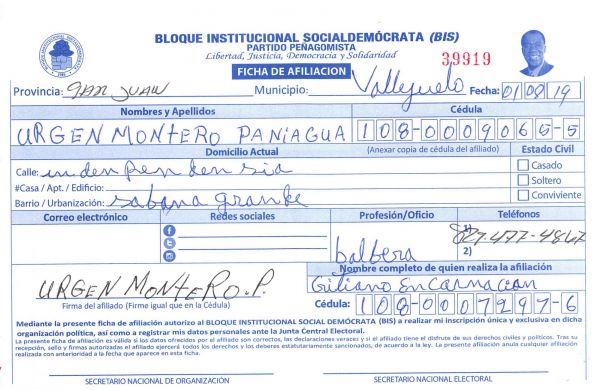 BLOQUE INSTITUCIONAL SOCIALDEMÓCRATA (BIS)
PARTIDO PEÑAGOMISTA
Libertad, Justicia, Democracia y Solidaridad
39919
FICHA DE AFILIACION
Provincia: San Juan Municipio: Vallejuelo Fecha: 01/08/19
Nombres y Apellidos Cédula
URGEN MONTERO PANIAGUA 108-0009065-5
Domicilio Actual (Anexar copia de cédula del afiliado) Estado Civil
Calle: indenpendensia
Casado
#Casa / Apt. / Edificio:
Soltero
Barrio / Urbanización: sabana grande
Conviviente
Correo electrónico Redes sociales Profesión/Oficio Teléfonos
1) 829-477-4867
balbera 2)
Nombre completo de quien realiza la afiliación
URGEN MONTERO.P. Giliano Encarnacion
Firma del afiliado (Firme igual que en la Cédula) Cédula: 108-0007297-6
Mediante la presente ficha de afiliación autorizo al BLOQUE INSTITUCIONAL SOCIAL DEMÓCRATA (BIS) a realizar mi inscripción única y exclusiva en dicha
organización política, así como a registrar mis datos personales ante la Junta Central Electoral.
La presente ficha de afiliación es válida si los datos ofrecidos por el afiliado son correctos, las declaraciones veraces y si el afiliado tiene el disfrute de sus derechos civiles y políticos. Tras su
recepción, sello y firmas autorizadas el afiliado ejercerá todos los derechos y los deberes estatutariamente sancionados, de acuerdo a la ley. La presente afiliación anula cualquier afiliación
realizada con anterioridad a la fecha que aparece en esta ficha.
SECRETARIO NACIONAL DE ORGANIZACIÓN SECRETARIO NACIONAL ELECTORAL